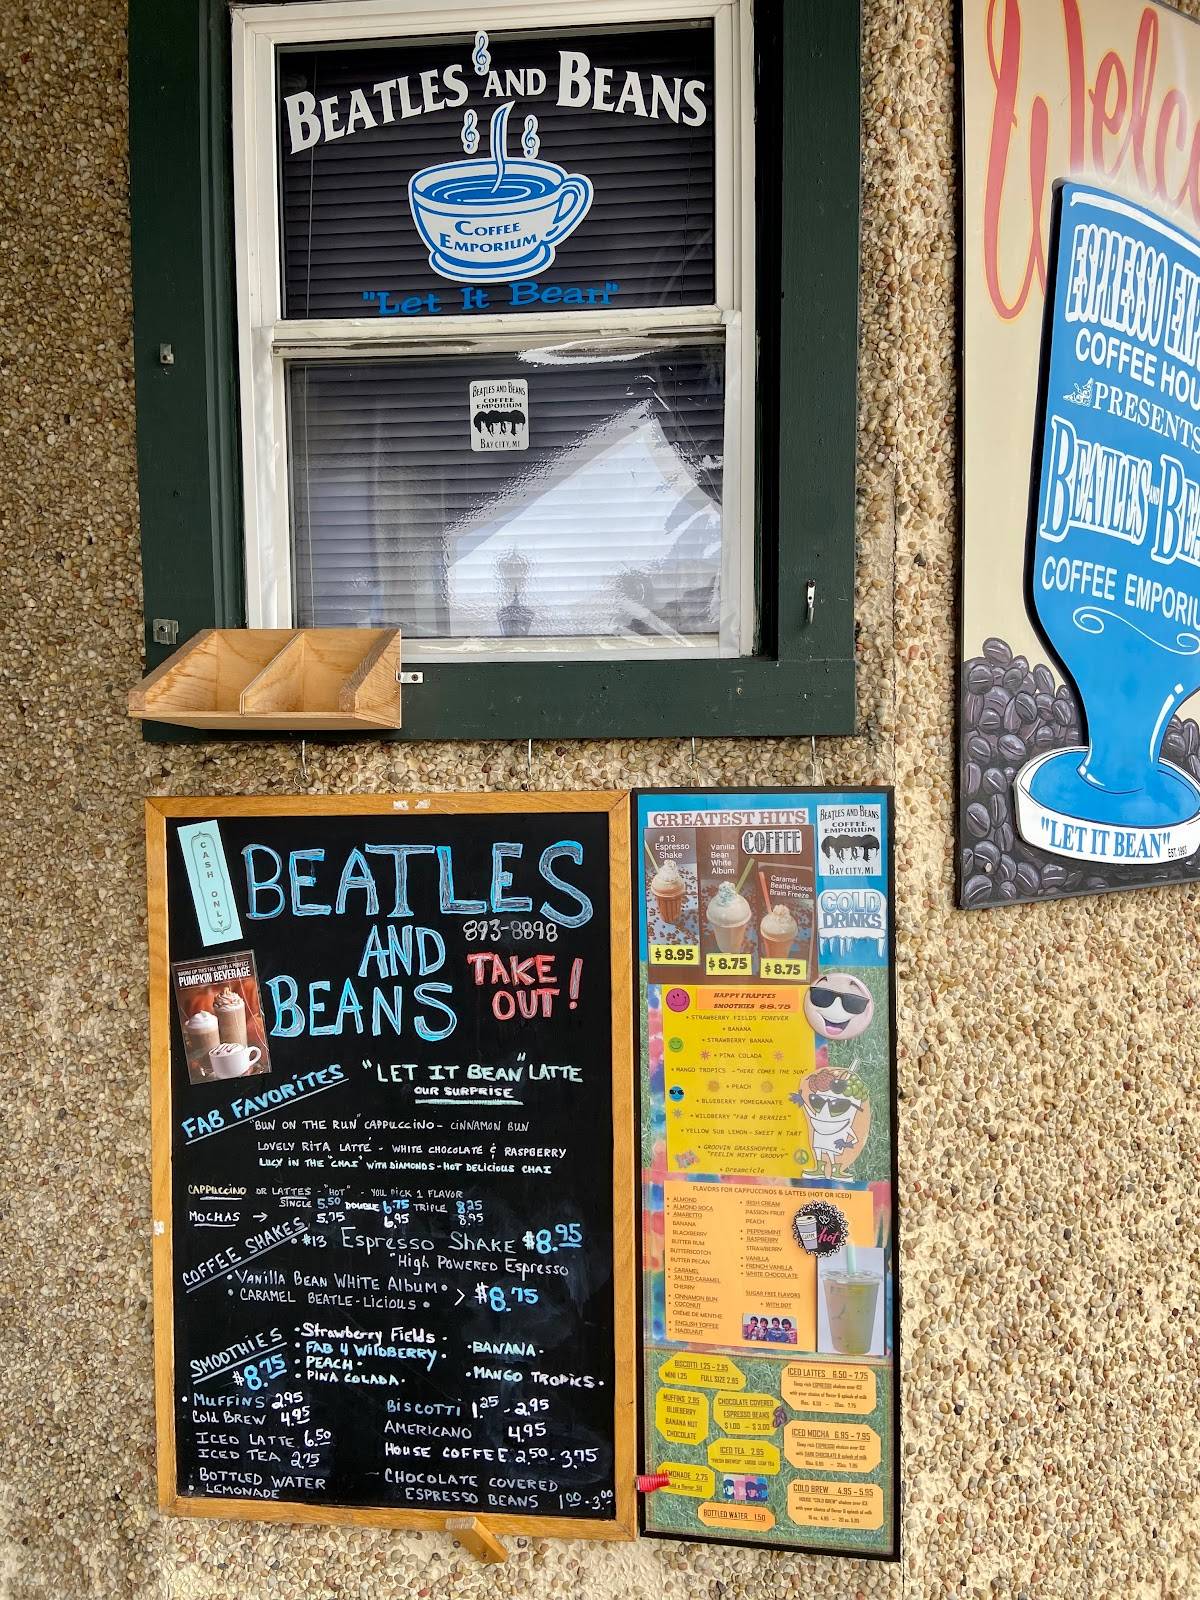 BEATLES AND BEANS
COFFEE
EMPORIUM
"Let It Bean"
BEATLES AND BEANS
COFFEE
EMPORIUM
BAY CITY, MI
ESPRESSO
COFFEE
PRESENTS
BEATLES AND
COFFEE
"LET IT BEAN"
EST. 1993
CASH ONLY
BEATLES
AND
BEANS
893-8898
TAKE
OUT!
PUMPKIN BEVERAGE
"LET IT BEAN" LATTE
OUR SURPRISE
FAB FAVORITES
"BUN ON THE RUN" CAPPUCCINO - CINNAMON BUN
LOVELY RITA LATTE - WHITE CHOCOLATE & RASPBERRY
LUCY IN THE "CHAI" WITH DIAMONDS - HOT DELICIOUS CHAI
CAPPUCCINO OR LATTES - "HOT" - YOU PICK 1 FLAVOR
SINGLE 5.50 DOUBLE 6.75 TRIPLE 8.25
MOCHAS → 5.75 6.95 8.95
COFFEE SHAKES
• #13 ESPRESSO SHAKE $8.95
"HIGH POWERED ESPRESSO
• VANILLA BEAN WHITE ALBUM •
• CARAMEL BEATLE-LICIOUS • > $8.75
SMOOTHIES
$8.75
• Strawberry Fields •
• FAB 4 WILDBERRY •
• PEACH •
• PINA COLADA •
• BANANA •
• MANGO TROPICS •
• MUFFINS 2.95
Cold BREW 4.95
ICED LATTE 6.50
ICED TEA 2.75
BOTTLED WATER
• LEMONADE
BISCOTTI 1.25 - 2.95
AMERICANO 4.95
HOUSE COFFEE 2.50 - 3.75
CHOCOLATE COVERED
ESPRESSO BEANS 1.00 - 3.00
GREATEST HITS
COFFEE
#13
Espresso
Shake
Vanilla
Bean
White
Album
Caramel
Beatle-licious
Brain Freeze
$8.95
$8.75
$8.75
BEATLES AND BEANS
COFFEE
EMPORIUM
BAY CITY, MI
COLD
DRINKS
HAPPY FRAPPES
SMOOTHIES $8.75
• STRAWBERRY FIELDS FOREVER
• BANANA
• STRAWBERRY BANANA
• PINA COLADA
• MANGO TROPICS - "HERE COMES THE SUN"
• PEACH
• BLUEBERRY POMEGRANATE
• WILDBERRY "FAB 4 BERRIES"
• YELLOW SUB LEMON - SWEET N TART
• GROOVIN GRASSHOPPER -
"FEELIN MINTY GROOVY"
• Dreamcicle
FLAVORS FOR CAPPUCCINOS & LATTES (HOT OR ICED)
• ALMOND
• ALMOND ROCA
• AMARETTO
BANANA
BLACKBERRY
BUTTER RUM
BUTTERSCOTCH
BUTTER PECAN
• CARAMEL
• SALTED CARAMEL
CHERRY
• CINNAMON BUN
• COCONUT
CRÈME DE MENTHE
• ENGLISH TOFFEE
• HAZELNUT
• IRISH CREAM
PASSION FRUIT
PEACH
• PEPPERMINT
• RASPBERRY
STRAWBERRY
• VANILLA
• FRENCH VANILLA
• WHITE CHOCOLATE
SUGAR FREE FLAVORS
• WITH DOT
hot
BISCOTTI 1.25 - 2.95
MINI 1.25 FULL SIZE 2.95
MUFFINS 2.95
BLUEBERRY
BANANA NUT
CHOCOLATE
CHOCOLATE COVERED
ESPRESSO BEANS
$1.00 - $3.00
ICED TEA 2.95
LEMONADE 2.75
BOTTLED WATER 1.50
ICED LATTES 6.50 - 7.75
Deep rich ESPRESSO shaken over ICE
with your choice of flavor & splash of milk
16oz. 6.50 - 20oz. 7.75
ICED MOCHA 6.95 - 7.95
Deep rich ESPRESSO shaken over ICE
with DARK CHOCOLATE & splash of milk
COLD BREW 4.95 - 5.95
HOUSE "COLD BREW" shaken over ICE
with your choice of flavor & splash of milk
16 oz. 4.95 - 20 oz. 5.95